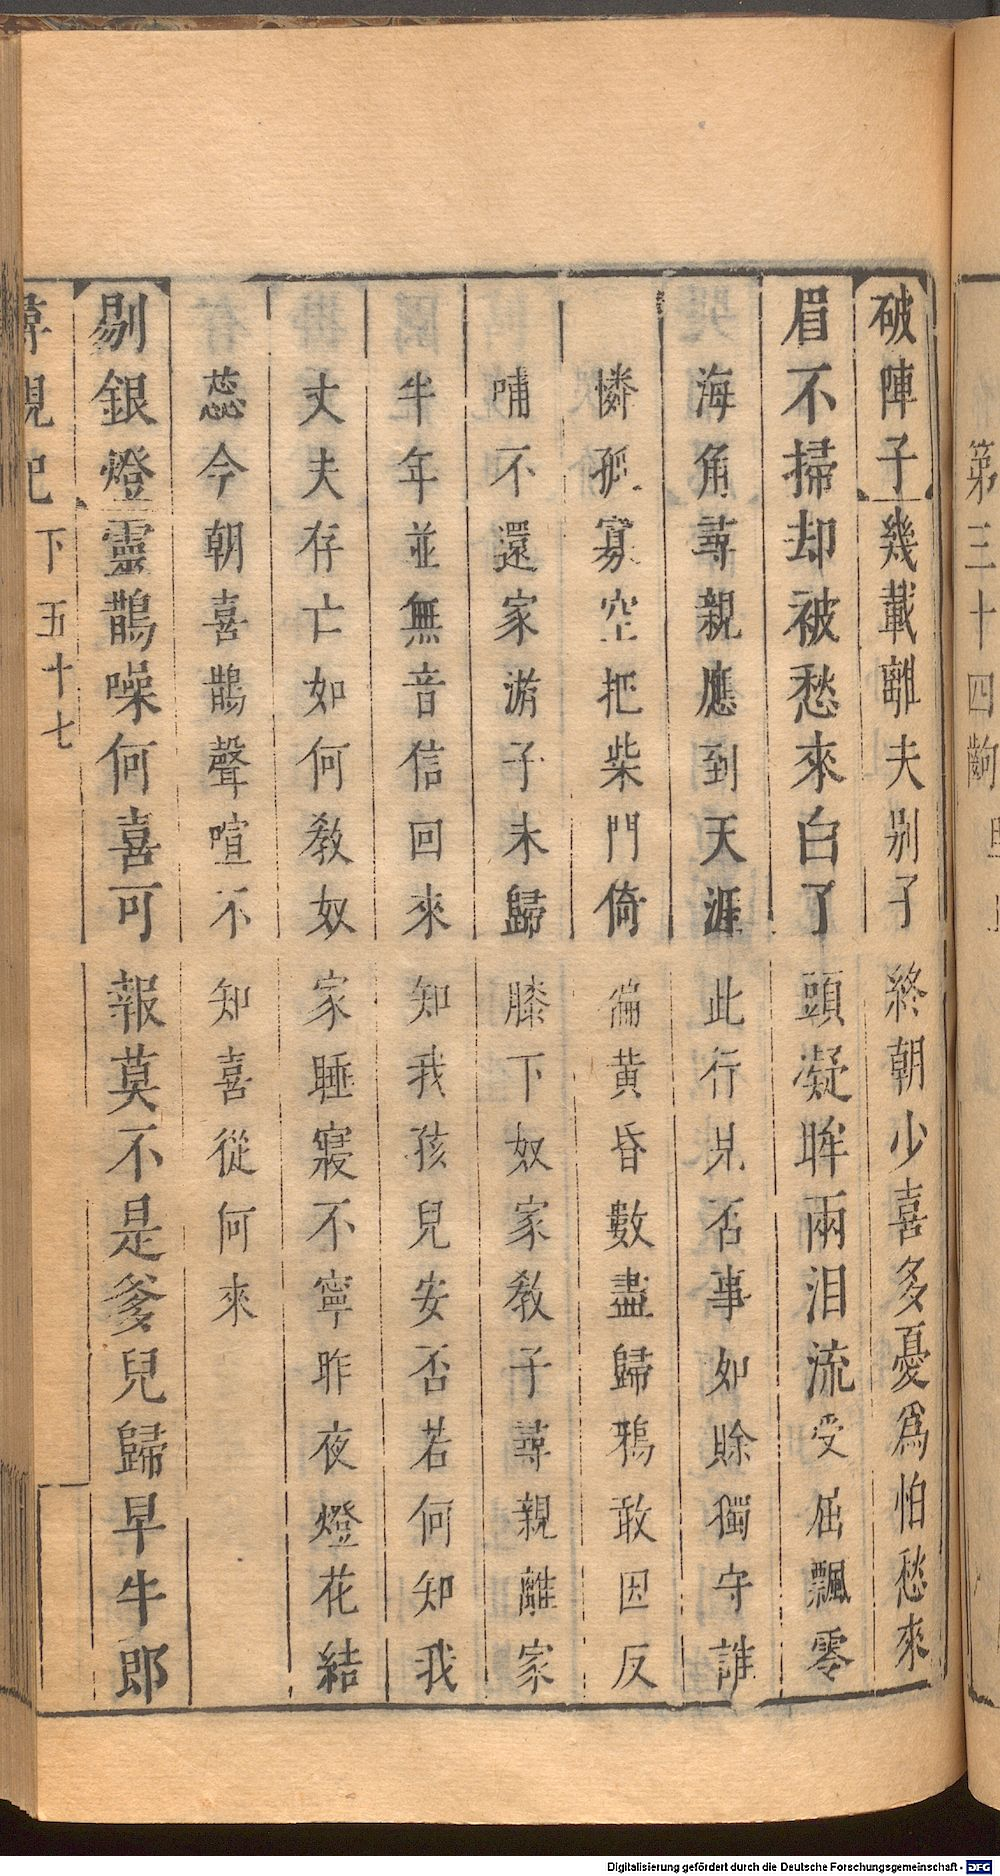 第三十四齣
破陣子幾載離夫别子終朝少喜多憂爲怕愁來
眉不掃却被愁來白了頭凝眸兩泪流受屈飄零
海角尋親應到天涯此行見否事如賒獨守誰
憐孤寡空把柴門倚徧黄昏數盡歸鴉敢因反
哺不還家游子未歸膝下奴家教子尋親離家
半年並無音信回來知我孩兒安否若何知我
丈夫存亡如何教奴家睡寢不寧昨夜燈花結
蕊今朝喜鵲聲喧不知喜從何來
剔銀燈靈鵲噪何喜可報莫不是爹兒歸早牛郎
尋親記 下 五十七
Digitalisierung gefördert durch die Deutsche Forschungsgemeinschaft - DFG